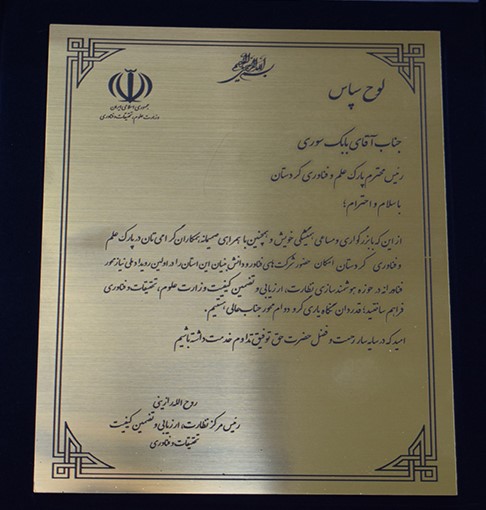 بسم الله الرحمن الرحیم
جمهوری اسلامی ایران
وزارت علوم، تحقیقات و فناوری
لوح سپاس
جناب آقای بابک سوری
رئیس محترم پارک علم و فناوری کردستان
با سلام و احترام؛
از این که با بزرگواری و مساعی همیشگی خویش و همچنین با همراهی صمیمانه همکاران گرامی تان در پارک علم
و فناوری کردستان امکان حضور شرکت های فناور و دانش بنیان این استان را در اولین رویداد ملی نیاز محور
فناورانه در حوزه هوشمندسازی نظارت، ارزیابی و تضمین کیفیت وزارت علوم، تحقیقات و فناوری
فراهم ساختید؛ قدردان نگاه یاری گر و دوام محور جناب عالی هستیم.
امید که در سایه سار رحمت و فضل حضرت حق توفیق تداوم خدمت داشته باشیم
روح الله رازینی
رئیس مرکز نظارت، ارزیابی و تضمین کیفیت
تحقیقات و فناوری